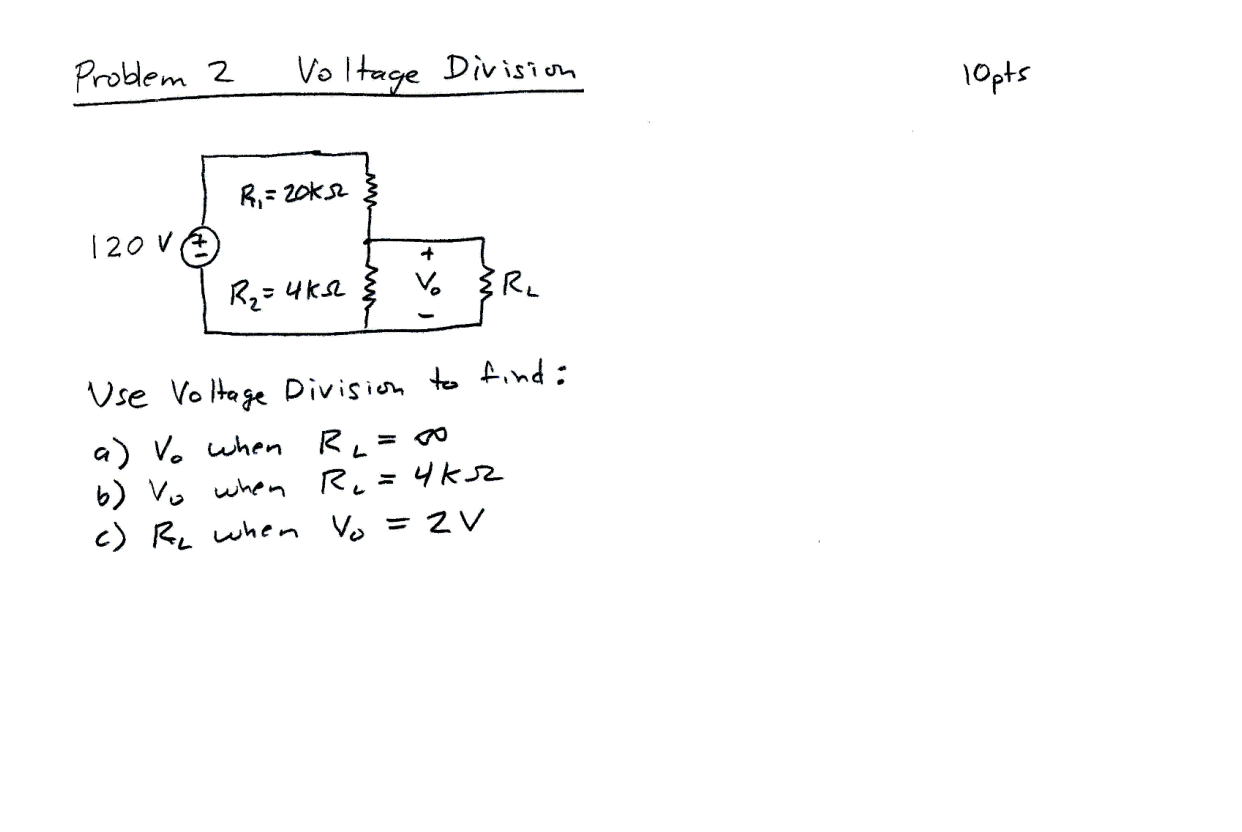 Problem 2 Voltage Division 10pts
R₁ = 20kΩ
120 V
+
-
R₂ = 4kΩ
+
V₀
-
R_L
Use Voltage Division to find:
a) V₀ when R_L = ∞
b) V₀ when R_L = 4kΩ
c) R_L when V₀ = 2V